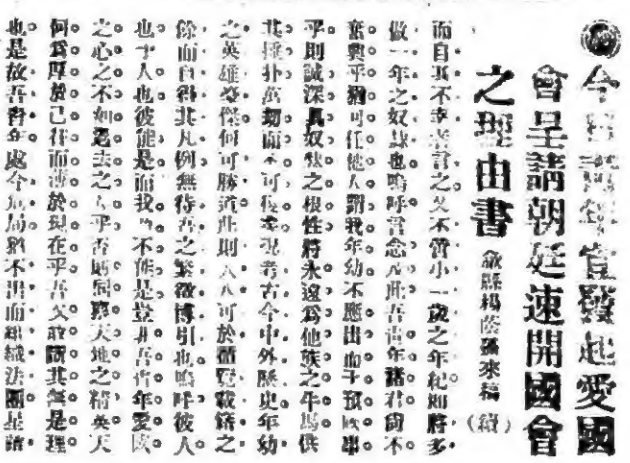 今日青年宜發起愛國
會呈請朝廷速開國會
之理由書
歙縣楊蔭孫來稿
(續)
而自其不幸者言之又不啻小一歲之年紀卽將多
做一年之奴隸也嗚呼言念及此吾青年諸君尙不
奮興乎猶可任他人謂我年幼不應出而干預國事
乎則誠深具奴隸之根性將永遠爲他族之牛馬供
其捶扑萬劫而不可復矣況考古今中外歷史年幼
之英雄豪傑何可勝道此則人人可於循覽載籍之
餘而自得其凡例無待吾之繁徵博引也嗚呼彼人
也予人也彼能是而我乃不能是豈非吾青年愛國
之心之不如過去之人乎否則同稟天地之精英天
何爲厚於已往而薄於現在乎吾又敢斷其無是理
也是故吾青年處今危局猶不出而組織法團呈請